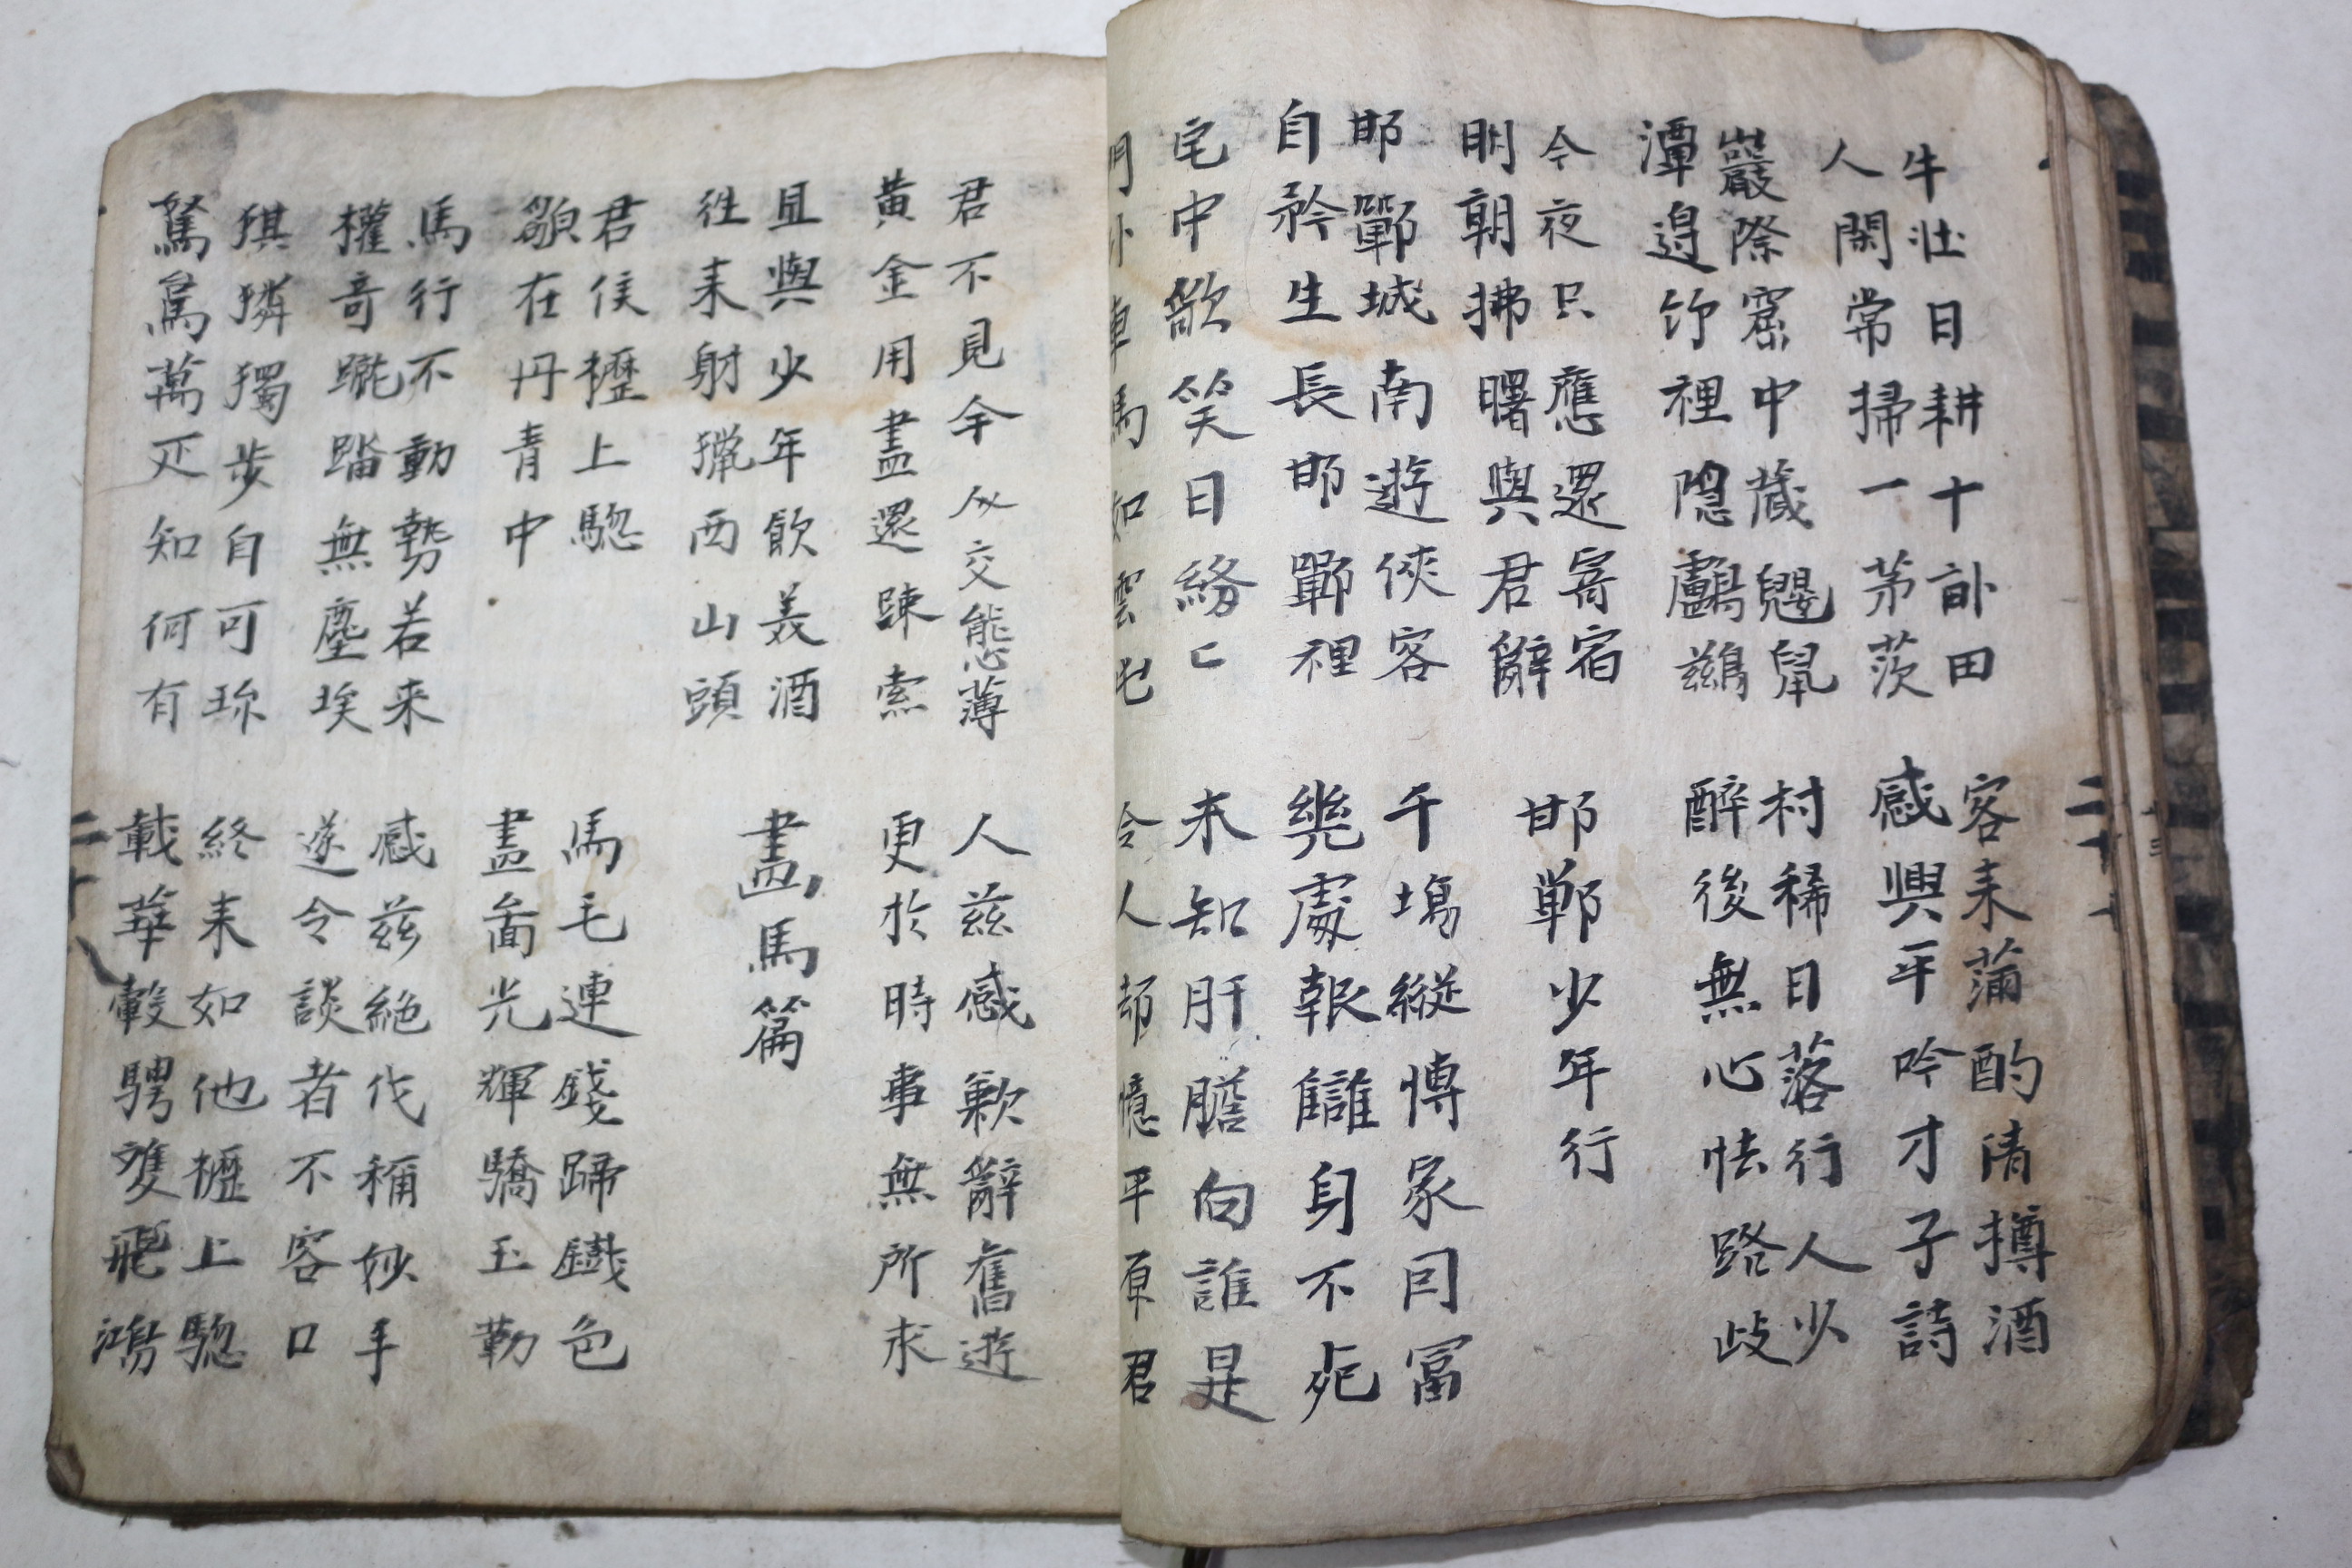 牛壯日耕十畝田
人閑常掃一茅茨
客来蒲酌清樽酒
感興平吟才子詩
巖際窟中蔵鼴鼠
潭邉竹裡隠鸕鷀
村稀日落行人少
醉後無心怯路歧
今夜只應還寄宿
明朝拂曙與君辭
邯鄲少年行
邯鄲城南遊俠客
自矜生長邯鄲裡
千塲縱愽家冨
幾處報讎身不死
宅中歌笑日紛〻
門外車馬如雲屯
未知肝膽向誰是
令人却憶平原君
君不見今人交態薄
黄金用盡還踈索
人茲感歎辭舊遊
更於時事無所求
且與少年飲美酒
徃来射獵西山頭
畫馬篇
君侯櫪上驄
貌在丹青中
馬毛連錢蹄鐵色
畫啚光輝驕玉勒
馬行不動勢若来
權奇蹴踏無塵埃
感茲絶代稱妙手
遂令談者不容口
騏驎獨步自可珎
駑駘萬疋知何有
終未如他櫪上驄
載華轂騁雙飛鴻
二十八
二十